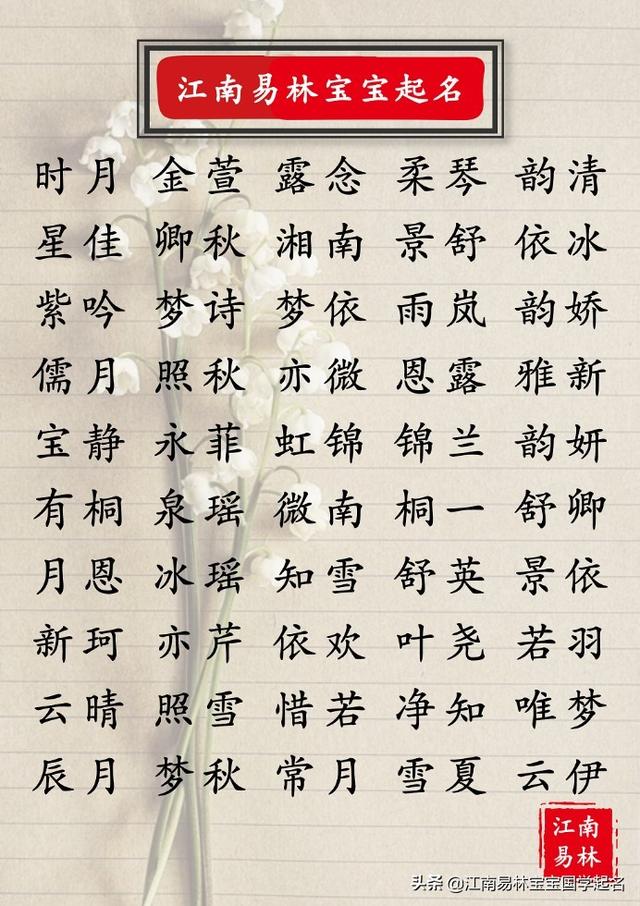 江南易林宝宝起名
时月 金萱 露念 柔琴 韵清
星佳 卿秋 湘南 景舒 依冰
紫吟 梦诗 梦依 雨岚 韵娇
儒月 照秋 亦微 恩露 雅新
宝静 永菲 虹锦 锦兰 韵妍
有桐 泉瑶 微南 桐一 舒卿
月恩 冰瑶 知雪 舒英 景依
新珂 亦芹 依欢 叶尧 若羽
云晴 照雪 惜若 净知 唯梦
辰月 梦秋 常月 雪夏 云伊
江南
易林
头条 @江南易林宝宝国学起名